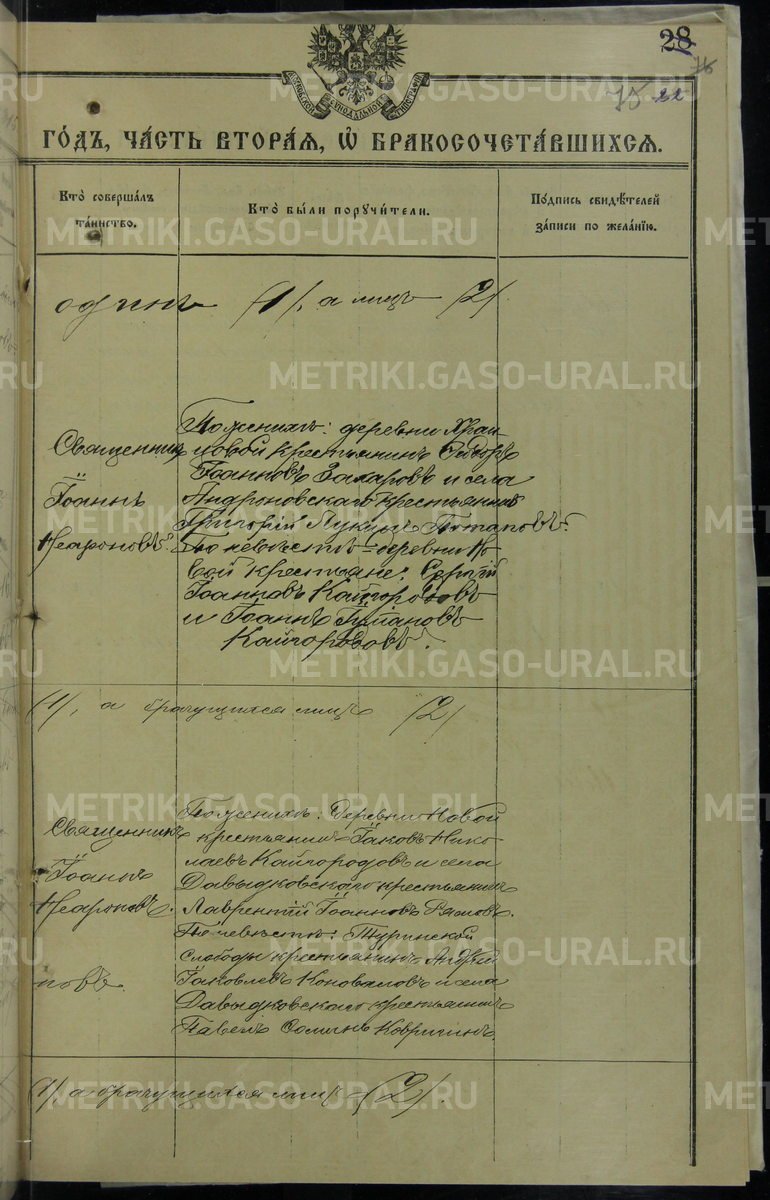 28
75 22
МОСКОВСКОЙ СѴНОДАЛЬНОЙ ТИПОГРАФІИ
ГО́ДЪ, ЧА́СТЬ ВТОРА́Я, Ѡ҆ БРАКОСОЧЕТА́ВШИХСЯ.
Кто̀ соверша́лъ
та́инство.
Кто̀ бы́ли поручи́тели.
По́дпись свидѣ́телей
за́писи по жела́нїю.
одинъ (1), а лицъ (2).
Священникъ
Іоаннъ
Неароновъ.
По женихѣ: деревни
крестьянинъ Ѳедоръ
Іоанновъ Захаровъ и села
Андроновскаго крестьянинъ
Григорій Лукинъ Потаповъ.
По невѣстѣ – деревни Но
вой крестьяне: Сергій
Іоанновъ Кайгородовъ
и Іоаннъ
Кайгородовъ.
(1), а брачущихся лицъ (2)
Священникъ
Іоаннъ
Неароновъ.
новъ.
По женихѣ: Деревни Новой
крестьянинъ Іаковъ Нико
лаевъ Кайгородовъ и села
Давыдковскаго крестьянинъ
Лаврентій Іоанновъ
По невѣстѣ: Туринской
слободы крестьянинъ Андрей
Іаковлевъ Коноваловъ и села
Давыдковскаго крестьянинъ
Павелъ Коврижинъ.
(1), а брачущихся лицъ – (2).
METRIKI.GASO-URAL.RU